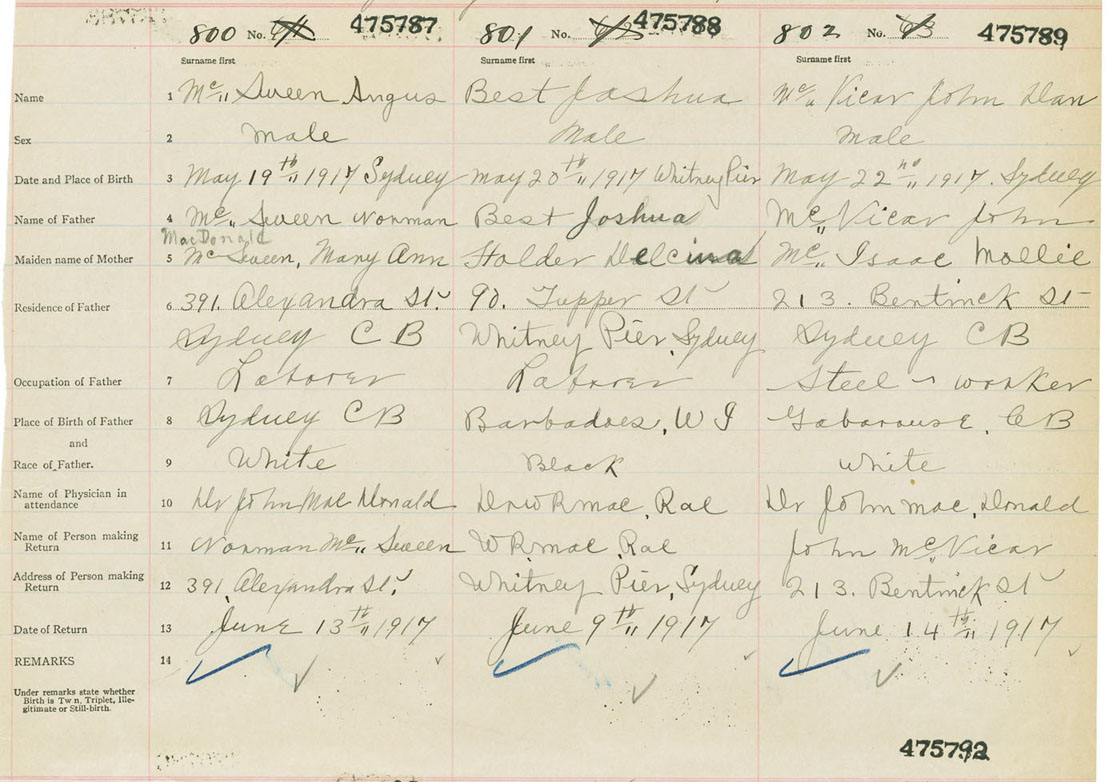 800 No. 475787 801 No. 475788 802 No. 475789
Surname first Surname first
Name 1 Mc„ Sween Angus Best Joshua Mc„ Vicar John Dan
Sex 2 Male Male Male
Date and Place of Birth 3 May 19th„ 1917 Sydney may 20th„ 1917 Whitney Pier May 22nd„ 1917. Sydney
Name of Father 4 Mc„ Sween Norman Best Joshua Mc„ Vicar John
MacDonald
Maiden name of Mother 5 Mc Sween, Mary Ann Holder Delcina Mc„ Isaac Mollie
Residence of Father 6 391. Alexandra St. 90. Tupper St 213. Bentinck St
Sydney C B Whitney Pier, Sydney Sydney C B
Occupation of Father 7 Laborer Laborer Steel - worker
Place of Birth of Father 8 Sydney C B Barbadoes, W I Gabarouse, C B
and
Race of Father. 9 White Black White
Name of Physician in
attendance 10 Dr John Mac Donald Dr W R Mac, Rae Dr John Mac, Donald
Name of Person making
Return 11 Norman Mc„ Sween W R Mac, Rae John Mc„ Vicar
Address of Person making
Return 12 391, Alexandra St. Whitney Pier, Sydney 213. Bentinck St
Date of Return 13 June 13th„ 1917 June 9th„ 1917 June 14th„ 1917
REMARKS 14
Under remarks state whether
Birth is Tw n, Triplet, Ille-
gitimate or Still-birth.